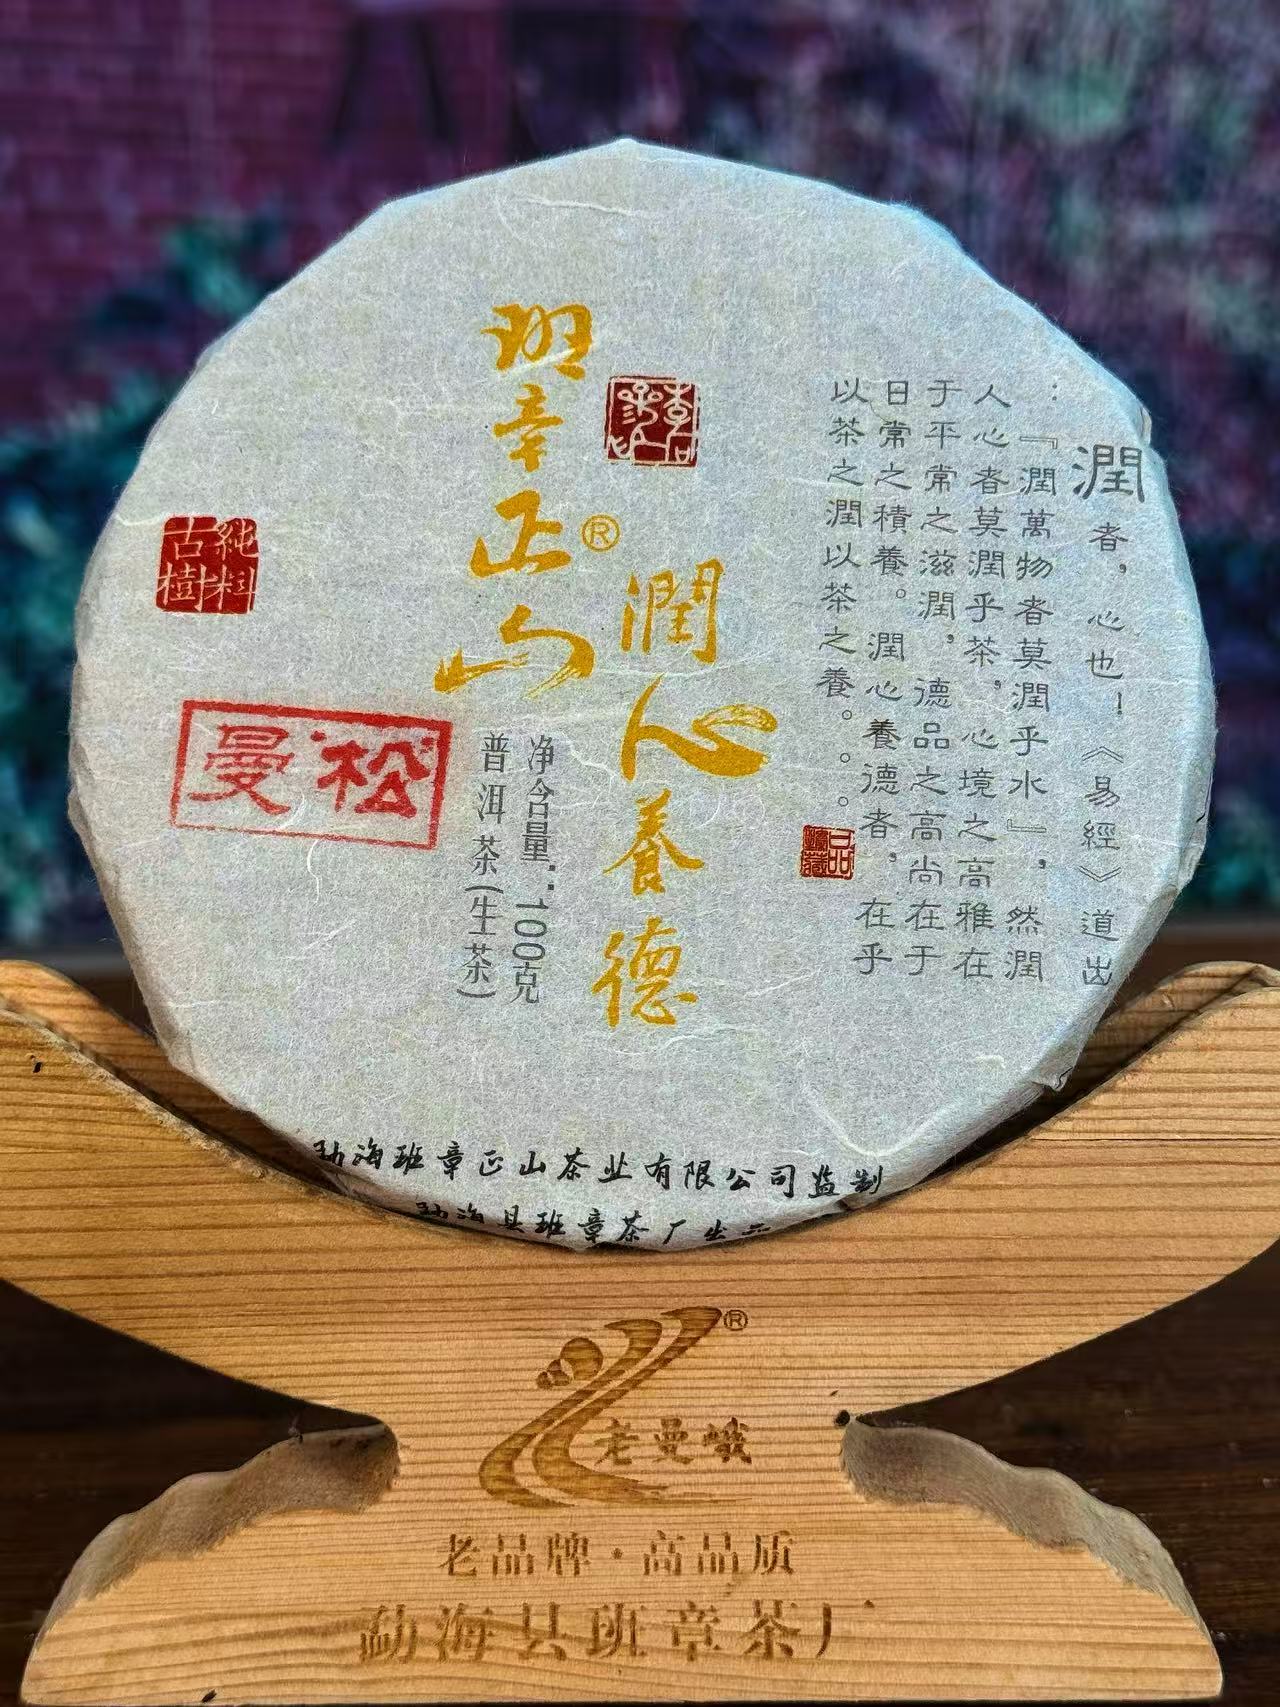 潤者，心也！《易經》道出
：『潤萬物者莫潤乎水』，然潤
人心者莫潤乎茶，心境之高雅在
于平常之滋潤，德品之高尚在于
日常之積養。潤心養德者，在乎
以茶之潤以茶之養。。。
班章正山®
潤心養德
净含量：100克
普洱茶(生茶)
純料
古樹
曼松
勐海班章正山茶业有限公司监制
勐海县班章茶厂出品
®
老曼峨
老品牌·高品质
勐海县班章茶厂